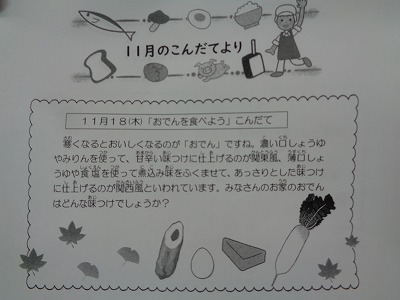 11月のこんだてより
11月18(木)「おでんを食べよう」こんだて
寒くなるとおいしくなるのが「おでん」ですね。濃い口しょうゆ
やみりんを使って、甘辛い味つけに仕上げるのが関東風、薄口しょ
うゆや食塩を使って煮込み味をふくませて、あっさりとした味つけ
に仕上げるのが関西風といわれています。みなさんのお家のおでん
はどんな味つけでしょうか？